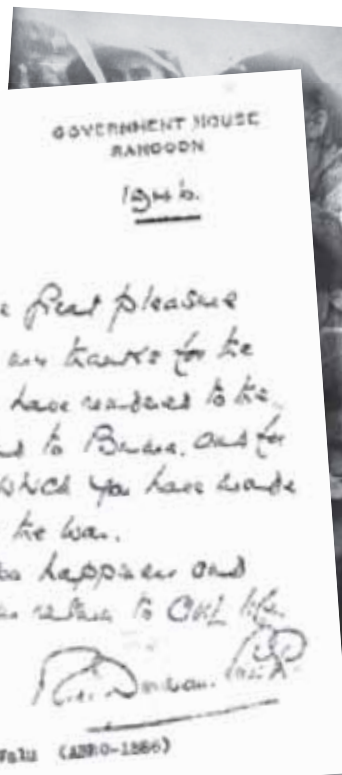 GOVERNMENT HOUSE
RANGOON
1946.
great pleasure
my thanks for the
have rendered to the
to Burma, and for
which you have made
the war.
happiness and
return to Civil life.
(ABRO-1886)